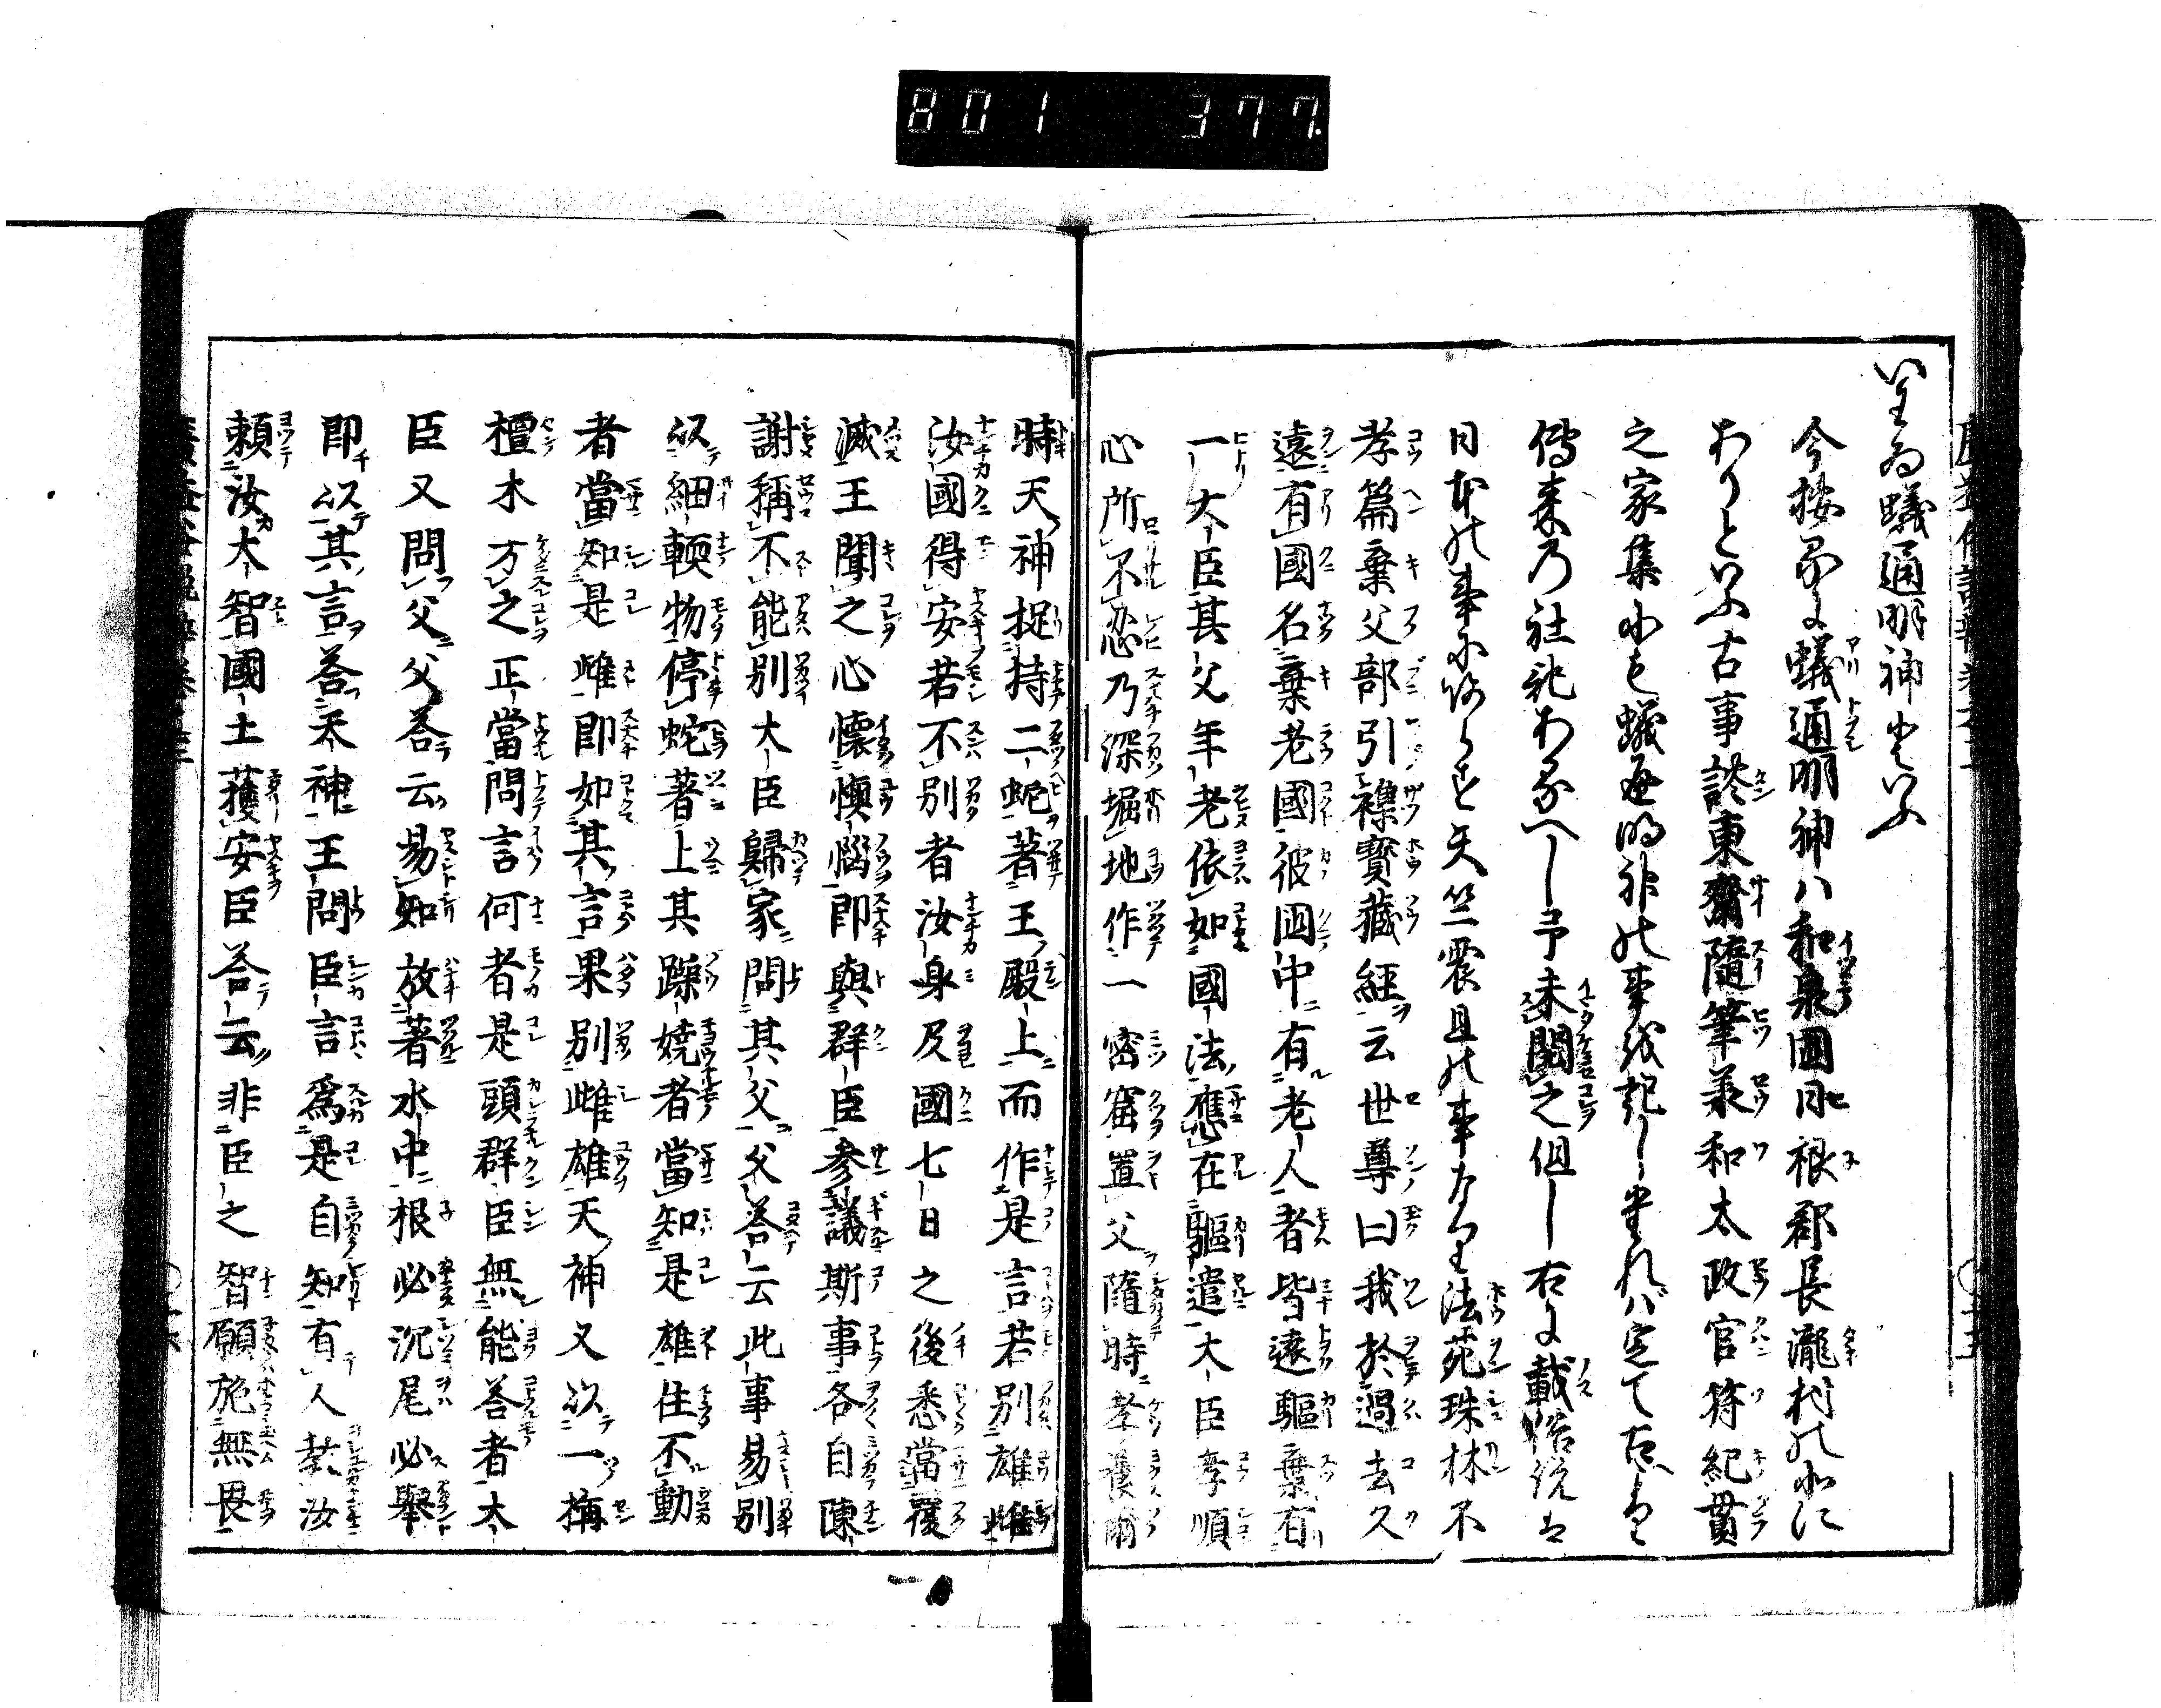 801 377
いはゆる蟻通明神といふ
今按るに蟻通明神ハ和泉國日根郡長瀧村の北に
ありといふ古事談東齋隨筆兼和太政官符紀貫
之家集にも蟻通の神の事を記し
傳来乃社記あるべし予未聞之但し右に載俗説は
日本の事にあらず天竺震旦の事なり法苑珠林不
孝篇棄父部引襍寶藏經云世尊曰我於過去久
遠有國名棄老國彼國中有老人者皆遠驅棄有
一大臣其父年老依如國法應在驅遣大臣孝順
心所不忍乃深堀地作一密窟置父隨時孝養爾
時天神捉持二蛇著王殿上而作是言若別雄雌
汝國得安若不別者汝身及國七日之後悉當覆
滅王聞之心懷懊惱即與群臣參議斯事各自陳
謝稱不能別大臣歸家問其父父答云此事易別
以細輭物停蛇著上其躁嬈者當知是雄住不動
者當知是雌即如其言果別雌雄天神又以一栴
檀木方之正當問言何者是頭群臣無能答者大
臣又問父父答云易知放著水中根必沉尾必舉
即以其言答天神王問臣言爲是自知有人教汝
賴汝大智國土獲安臣答云非臣之智願施無畏